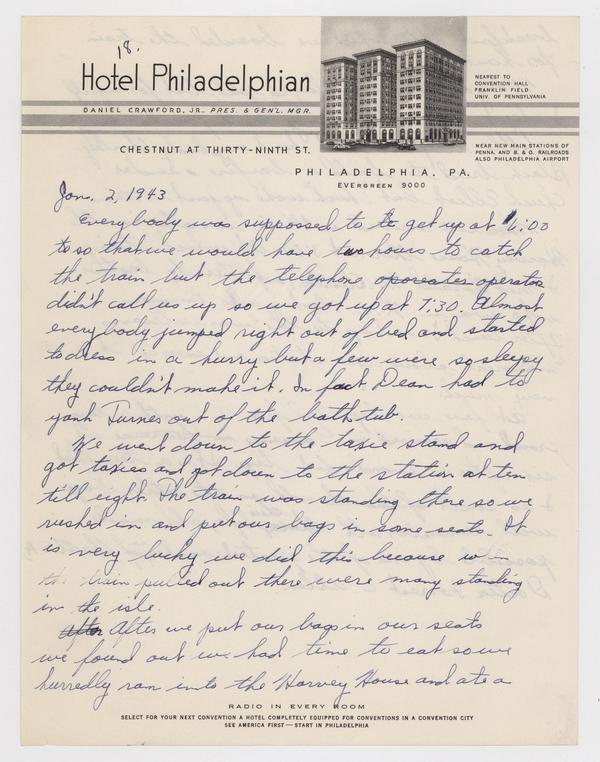 18.
Hotel Philadelphian
DANIEL CRAWFORD, JR., PRES. & GEN'L. MGR.
NEAREST TO
CONVENTION HALL
FRANKLIN FIELD
UNIV. OF PENNSYLVANIA
CHESTNUT AT THIRTY-NINTH ST.
NEAR NEW MAIN STATIONS OF
PENNA. AND B. & O. RAILROADS
ALSO PHILADELPHIA AIRPORT
PHILADELPHIA, PA.
EVERGREEN 9000
Jan. 2, 1943
Everybody was suppossed to get up at 6:00
to so that we would have two hours to catch
the train but the telephone oporeater operator
didn't call us up so we got up at 7:30. Almost
everybody jumped right out of bed and started
to dress in a hurry but a few were so sleepy
they couldn't make it. In fact Dean had to
yank Turnes out of the bath tub.
We went down to the taxie stand and
got taxies and got down to the station at ten
till eight. The train was standing there so we
rushed in and put our bags in some seats. It
is very lucky we did this because w n
the train pulled out there were many standing
in the isle.
After After we put our bags in our seats
we found out we had time to eat so we
hurredly ran into the Harvey House and ate a
RADIO IN EVERY ROOM
SELECT FOR YOUR NEXT CONVENTION A HOTEL COMPLETELY EQUIPPED FOR CONVENTIONS IN A CONVENTION CITY
SEE AMERICA FIRST — START IN PHILADELPHIA